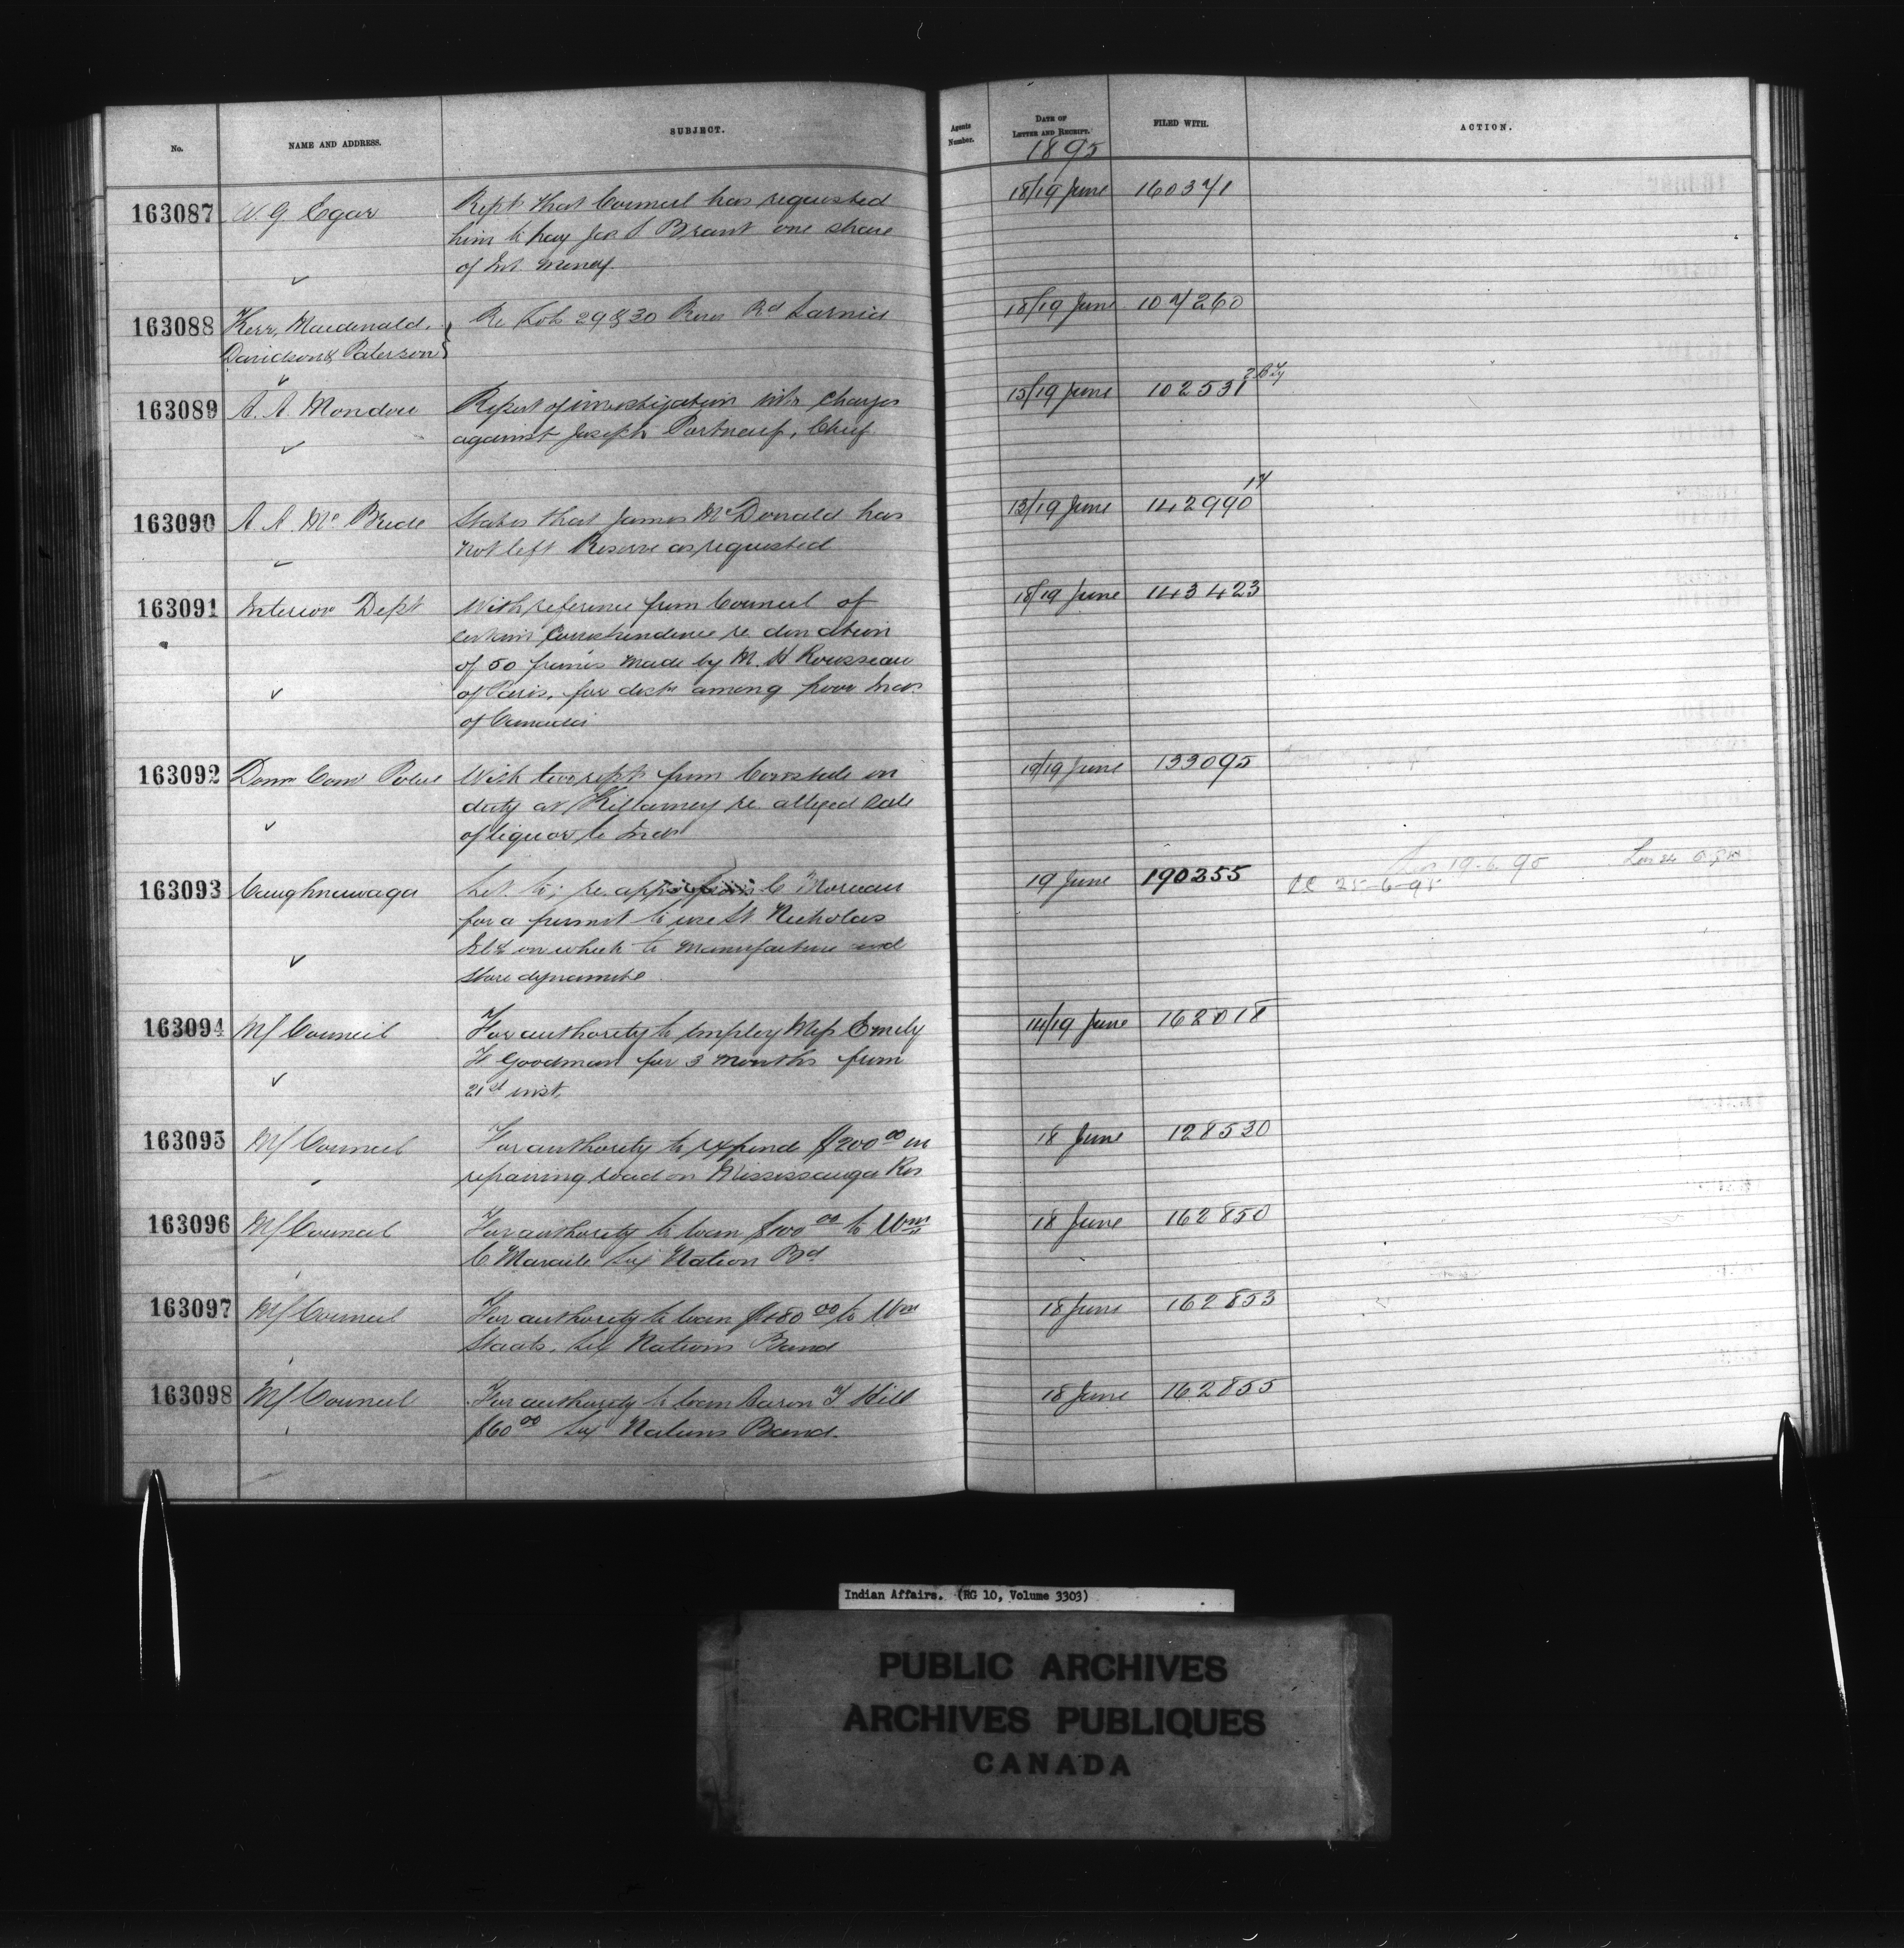 No.
NAME AND ADDRESS.
SUBJECT.
Agents Number.
DATE OF LETTER AND RECEIPT.
FILED WITH.
ACTION.
1895
163087 W. G Egar Rept. that Council has requested 18/19 June 160371
him to pay Jos S Brant one share
of Int. money.
163088 Kerr, Macdonald, Re Lots 29 & 30 Res Rd Sarnia 18/19 June 107260
Davidson & Paterson
163089 A. A. Mondou Report of investigation into charges 15/19 June 102531
against Joseph Portneuf, Chief
163090 A. A. McBride States that James McDonald has 13/19 June 142990 17
not left Reserve as requested
163091 Interior Dept With reference from Council of 18/19 June 143423
certain correspondence re donation
of 50 francs made by M. H Rousseau
of Paris, for distn among poor Inds
of Canada
163092 Domn Comr Police With two repts from Constable on 19/19 June 133095
duty at Killarney re alleged sale
of liquor to Inds
163093 Caughnawaga Let. to; re. C Moreau 19 June 190255 19.6.95
for a permit to use St Nicholas 25-6-95
Isld on which to manufacture and
store dynamite
163094 M/ Council For authority to employ Miss Emily 14/19 June 162018
Goodman for 3 months from
21st inst.
163095 M/ Council For authority to expend $200.00 in 18 June 128530
repairing road on Mississauga Res
163096 M/ Council For authority to loan $100.00 to Wm 18 June 162850
C Maracle Six Nation Bd
163097 M/ Council For authority to loan 80.00 to Wm 18 June 162853
Staats, Six Nations Band
163098 M/ Council For authority to loan Aaron T Hill 18 June 162855
$60.00 Six Nations Band.
Indian Affairs. (RG 10, Volume 3303)
PUBLIC ARCHIVES
ARCHIVES PUBLIQUES
CANADA